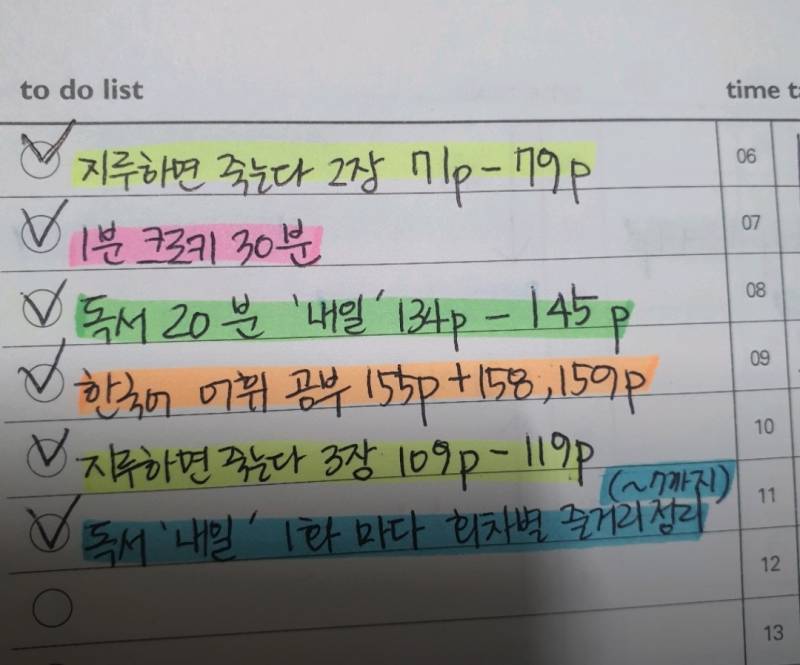 to do list
time t
지루하면 죽는다 2장 71p - 79p
06
1분 크로키 30분
07
독서 20분 '내일' 134p - 145p
08
한국어 어휘 공부 155p + 158, 159p
09
지루하면 죽는다 3장 109p - 119p
10
(~7까지)
11
독서 '내일' 1화 마다 회차별 줄거리 정리
12
13